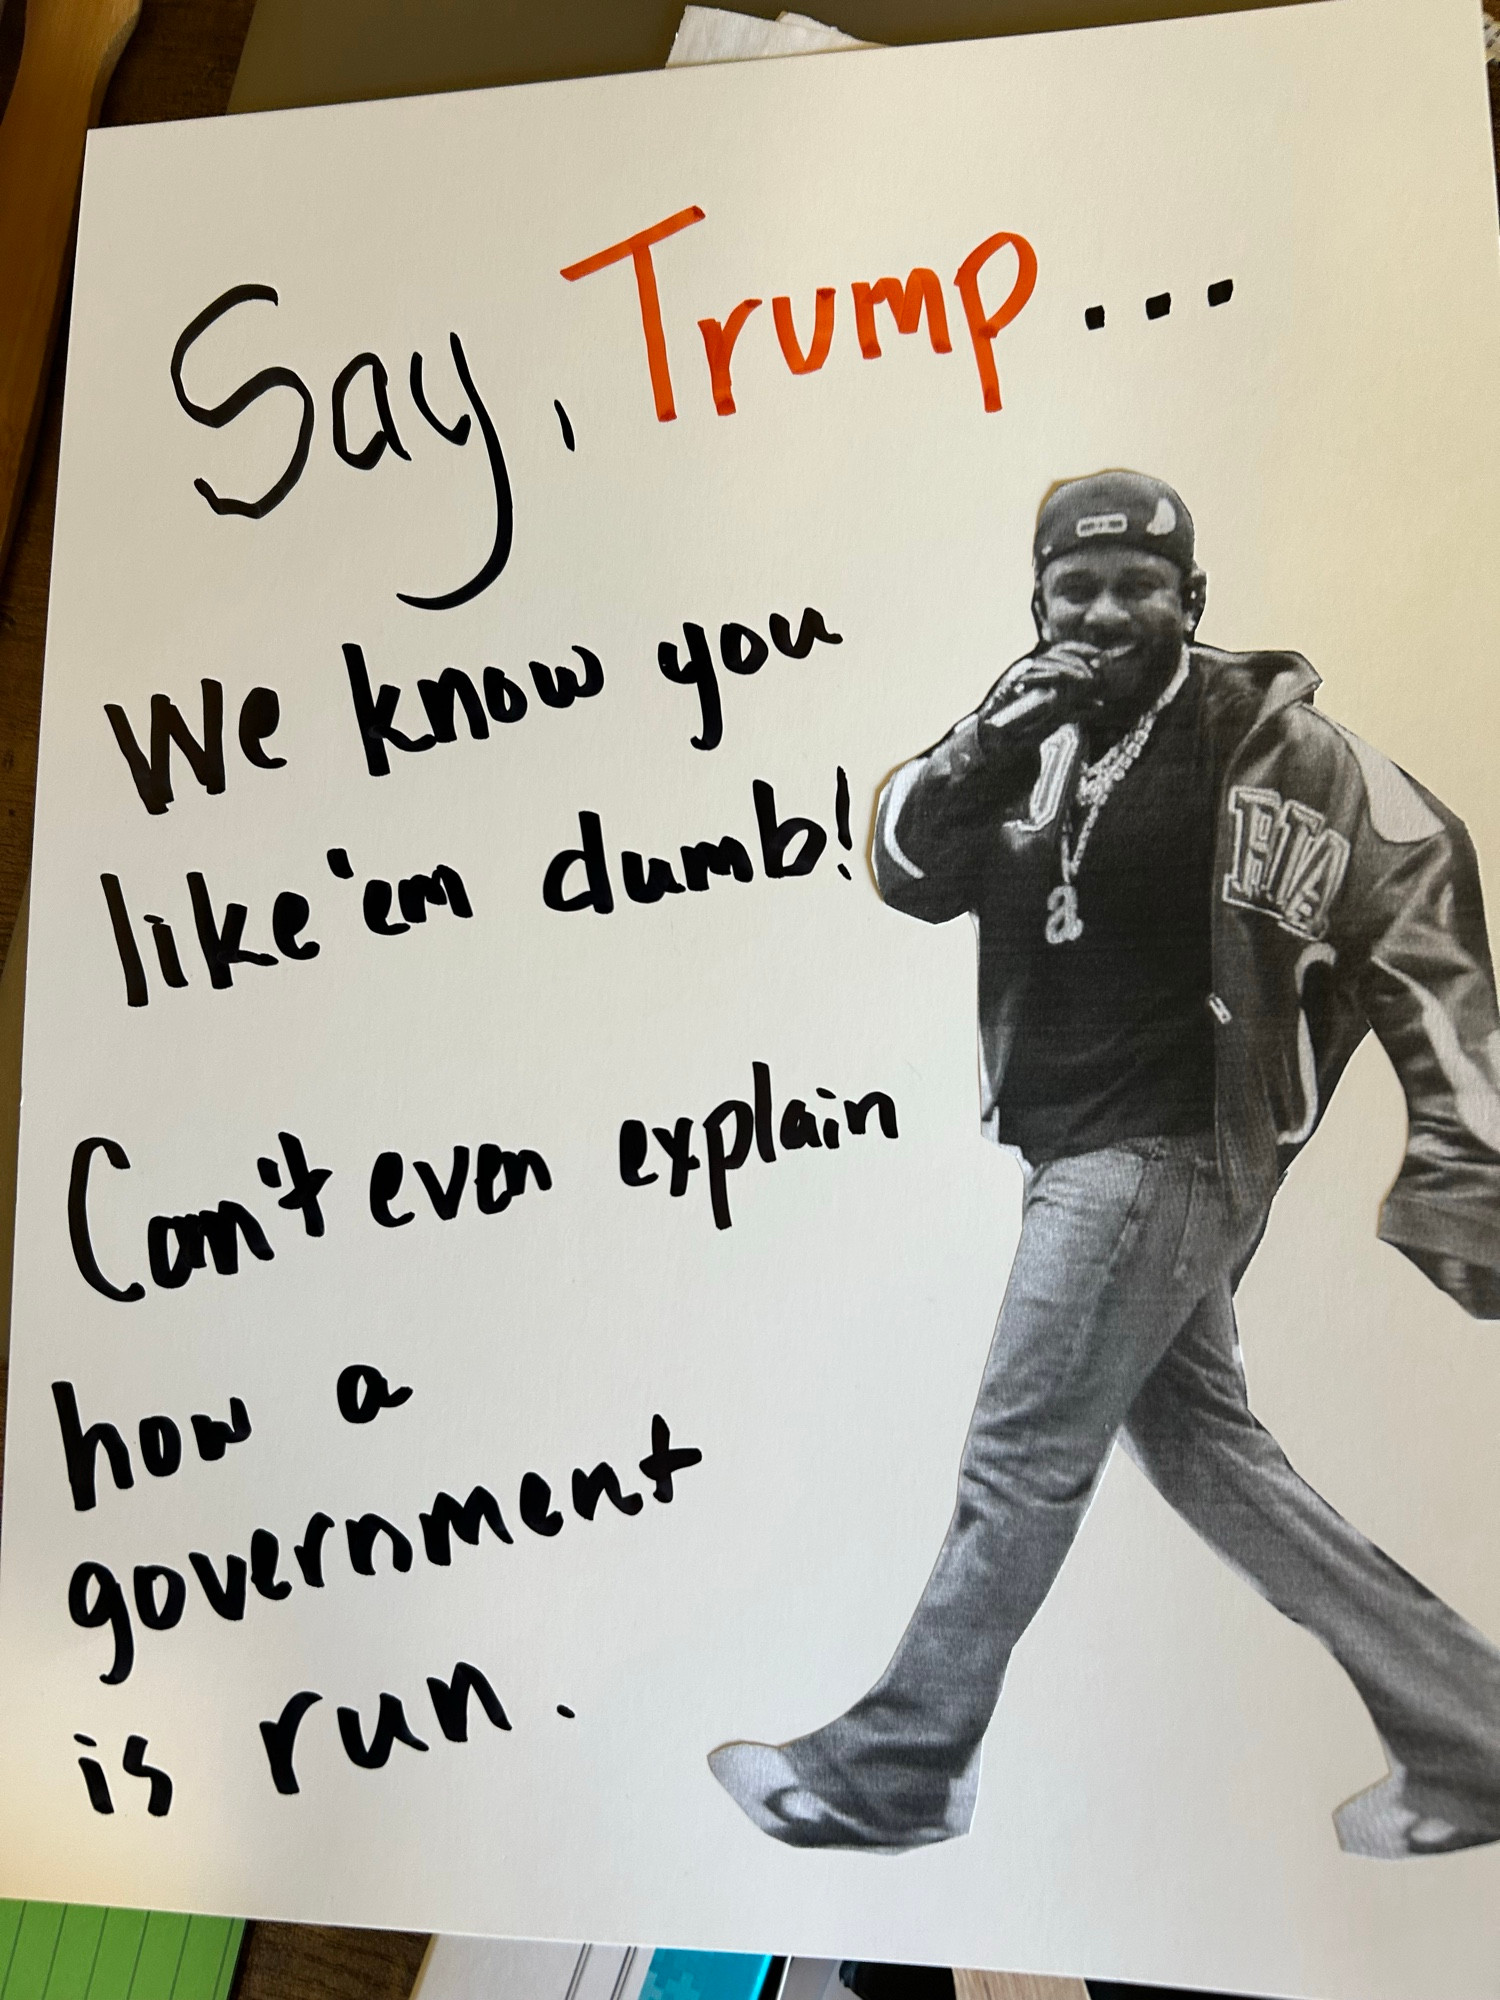 Say, Trump...
We know you
like 'em dumb!
Can't even explain
how a
government
is run.
a